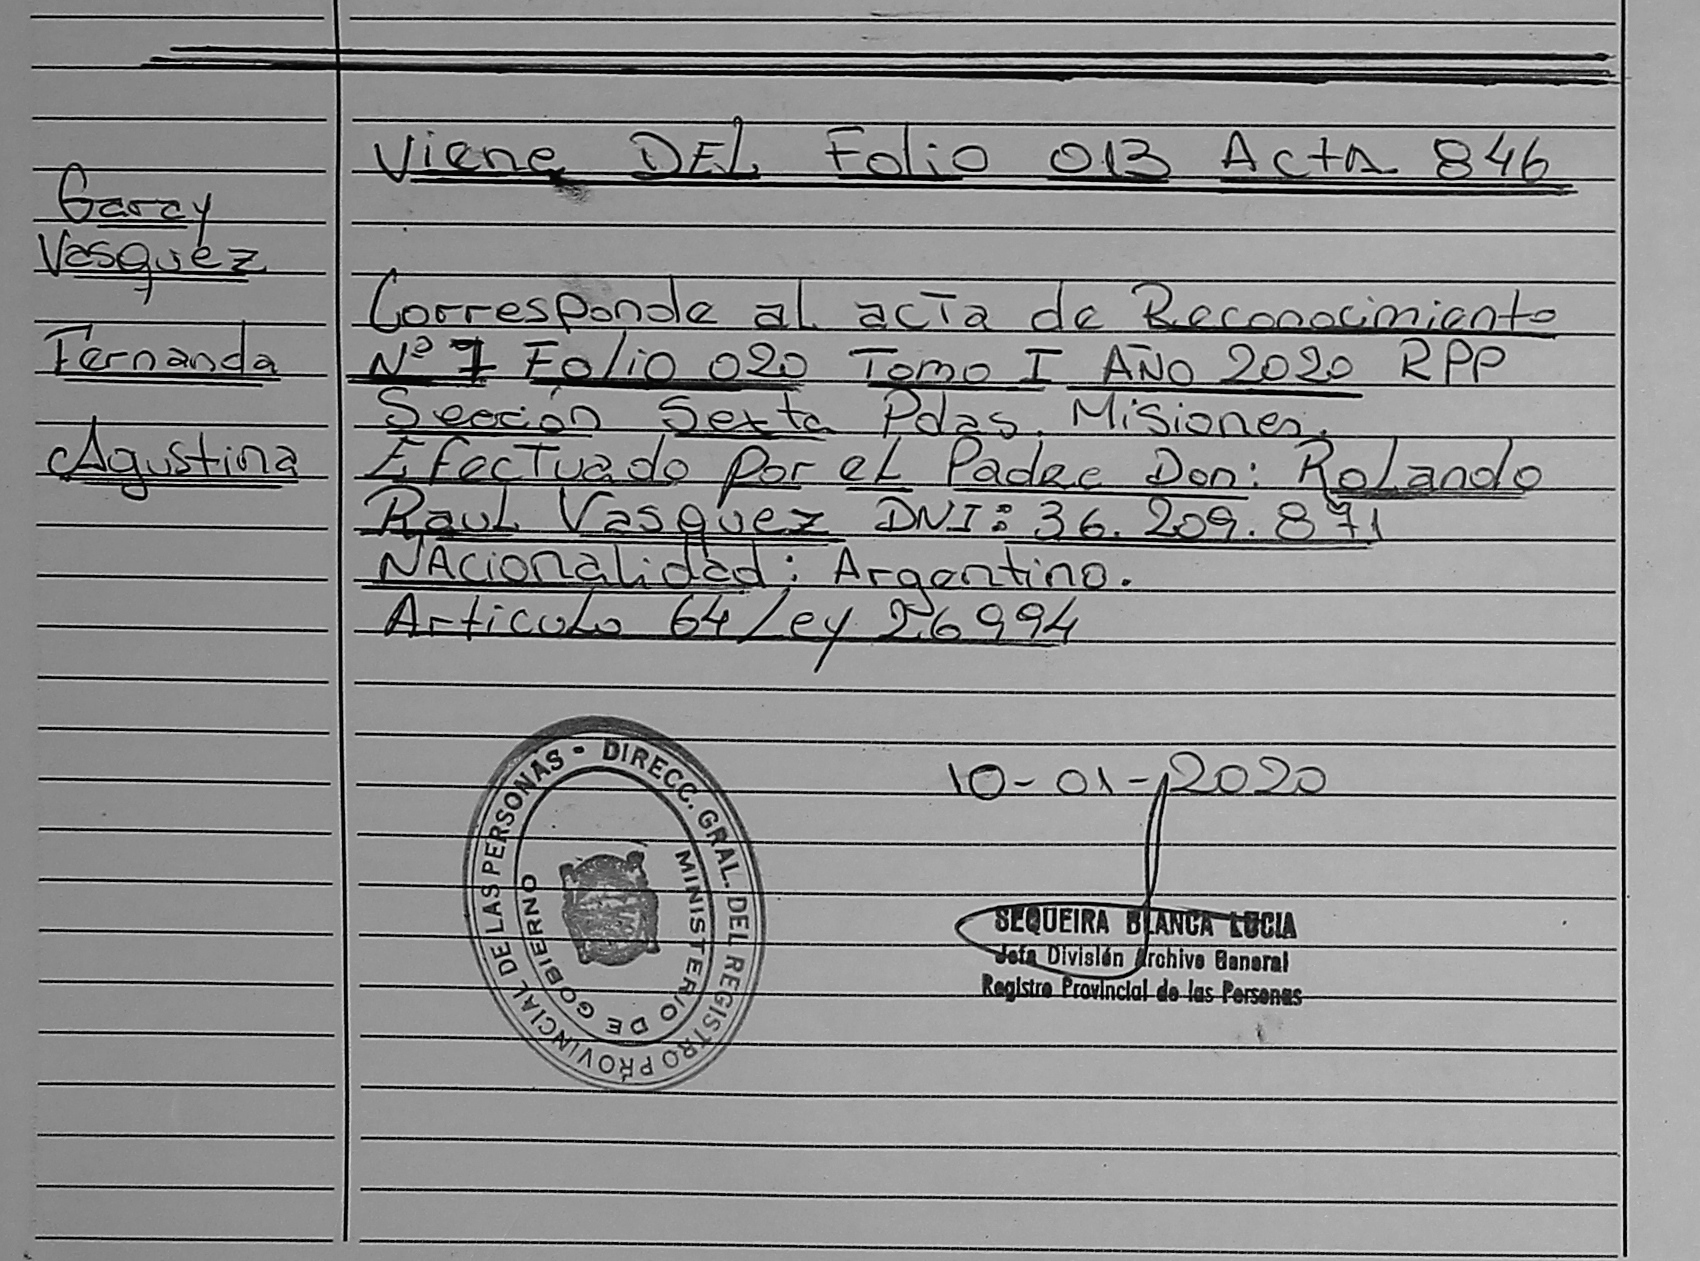 Garay
Vasquez
Fernanda
Agustina
Viene DEL Folio 013 Acta 846
Corresponde al acta de Reconocimiento
Nº 7 Folio 020 Tomo I AÑO 2020 RPP
Sección Sexta Pdas. Misiones.
Efectuado por el Padre Don: Rolando
Raul Vasquez DNI: 36.209.871
NAcionalidad: Argentino.
Articulo 64 Ley 26994
DIRECC. GRAL. DEL REGISTRO PROVINCIAL DE LAS PERSONAS -
MINISTERIO DE GOBIERNO
10-01-2020
SEQUEIRA BLANCA LUCIA
Jefa División Archivo General
Registro Provincial de las Personas